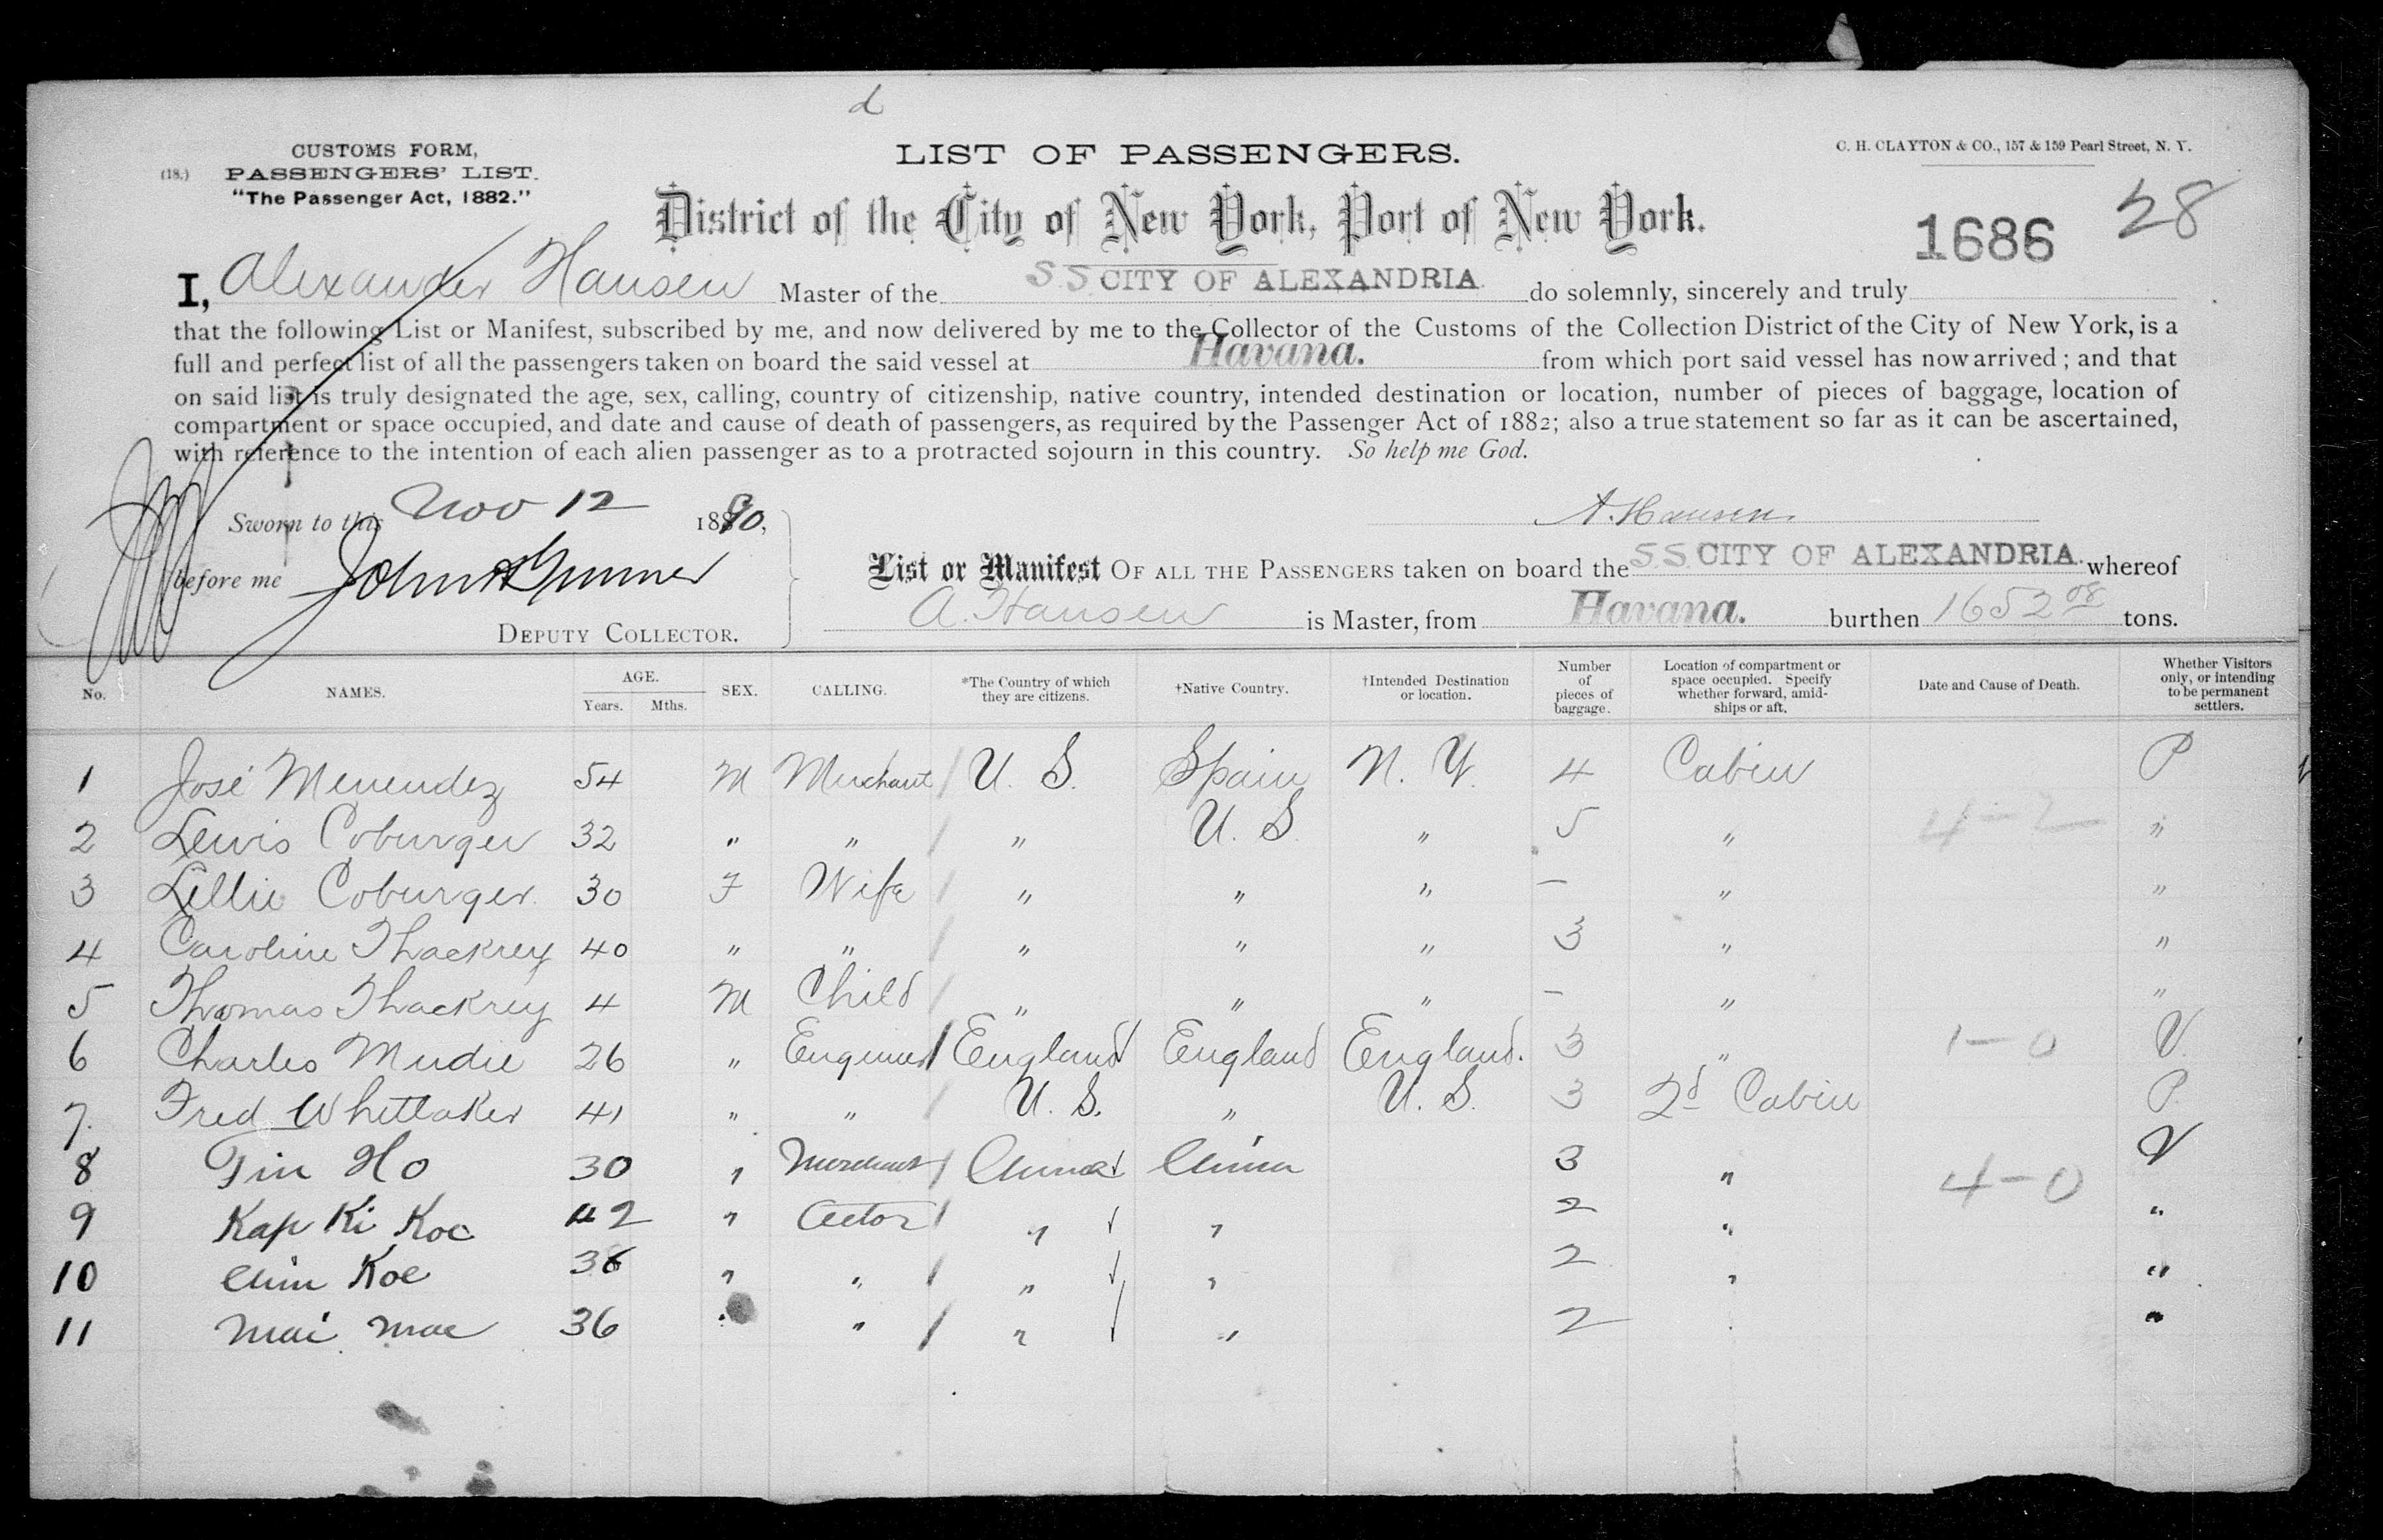 d
CUSTOMS FORM,
(18.) PASSENGERS' LIST.
"The Passenger Act, 1882."
LIST OF PASSENGERS.
C. H. CLAYTON & CO., 157 & 159 Pearl Street, N. Y.
District of the City of New York, Port of New York.
1686 28
I, Alexander Hansen Master of the S S CITY OF ALEXANDRIA. do solemnly, sincerely and truly
that the following List or Manifest, subscribed by me, and now delivered by me to the Collector of the Customs of the Collection District of the City of New York, is a
full and perfect list of all the passengers taken on board the said vessel at Havana. from which port said vessel has now arrived; and that
on said list is truly designated the age, sex, calling, country of citizenship, native country, intended destination or location, number of pieces of baggage, location of
compartment or space occupied, and date and cause of death of passengers, as required by the Passenger Act of 1882; also a true statement so far as it can be ascertained,
with reference to the intention of each alien passenger as to a protracted sojourn in this country. So help me God.
Sworn to this Nov 12 1890,
A. Hansen
before me John
DEPUTY COLLECTOR.
List or Manifest OF ALL THE PASSENGERS taken on board the S.S. CITY OF ALEXANDRIA. whereof
A. Hansen is Master, from Havana. burthen 1652 08 tons.
No. NAMES. AGE. Years. Mths. SEX. CALLING. *The Country of which they are citizens. †Native Country. †Intended Destination or location. Number of pieces of baggage. Location of compartment or space occupied. Specify whether forward, amidships or aft. Date and Cause of Death. Whether Visitors only, or intending to be permanent settlers.
1 José Menendez 54 M Merchant / U. S. Spain N. Y. 4 Cabin P
2 Lewis Coburger 32 " " / " U. S. " 5 " 4-2 "
3 Lillie Coburger. 30 F Wife / " " " — " "
4 Caroline Thackrey 40 " " / " " " 3 " "
5 Thomas Thackrey 4 M Child / " " " — " "
6 Charles Mudie 26 " Engineer / England England England. 3 " 1-0 V.
7. Fred Whittaker 41 " " / U. S. " U. S. 3 2d Cabin P.
8 Tin Ho 30 " Merchant / China China 3 " 4-0 V
9 Kap Ki Koc 42 " Actor / " " 2 " "
10 Chin Koe 36 " " / " " 2 " "
11 Mai Mae 36 " " / " " 2 "